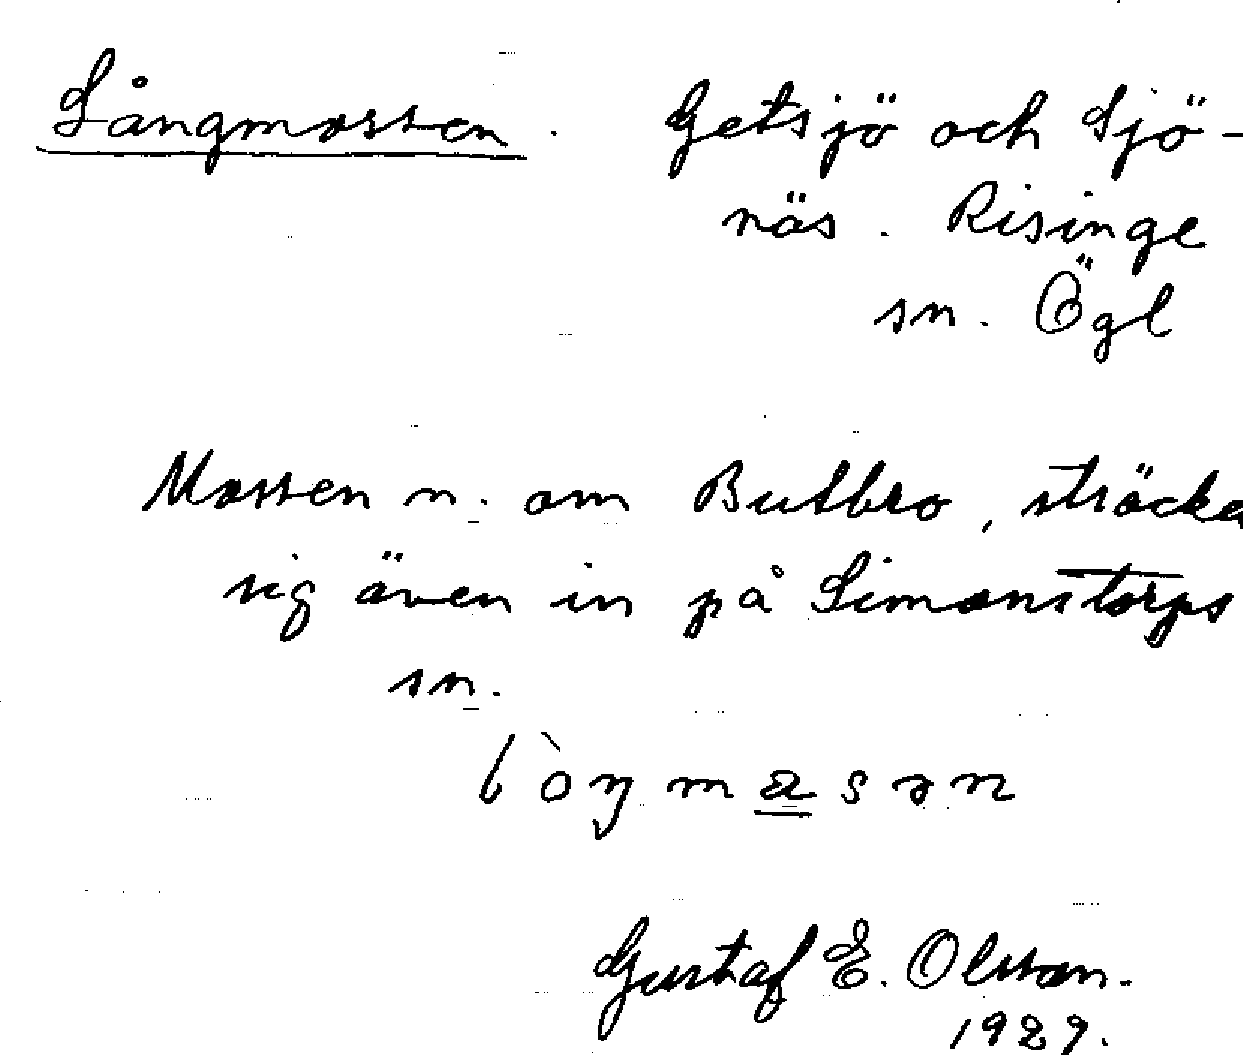 Långmossen. Getsjö och Sjö-
näs. Risinge
sn. Ögl
Mossen n. om Butbro, sträcker
sig även in på Simonstorps
sn.
Gustaf E. Olsson.
1929.